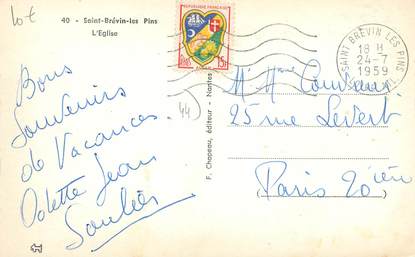 10 €
40 - Saint-Brévin-les Pins
L'Eglise
REPUBLIQUE FRANÇAISE
15F
SAINT BREVIN LES PINS
18 H
24-7
1959
Bons
Souvenirs
de Vacances
Odette Jean
44
F. Chapeau, éditeur - Nantes
25 rue
Paris 20 ième